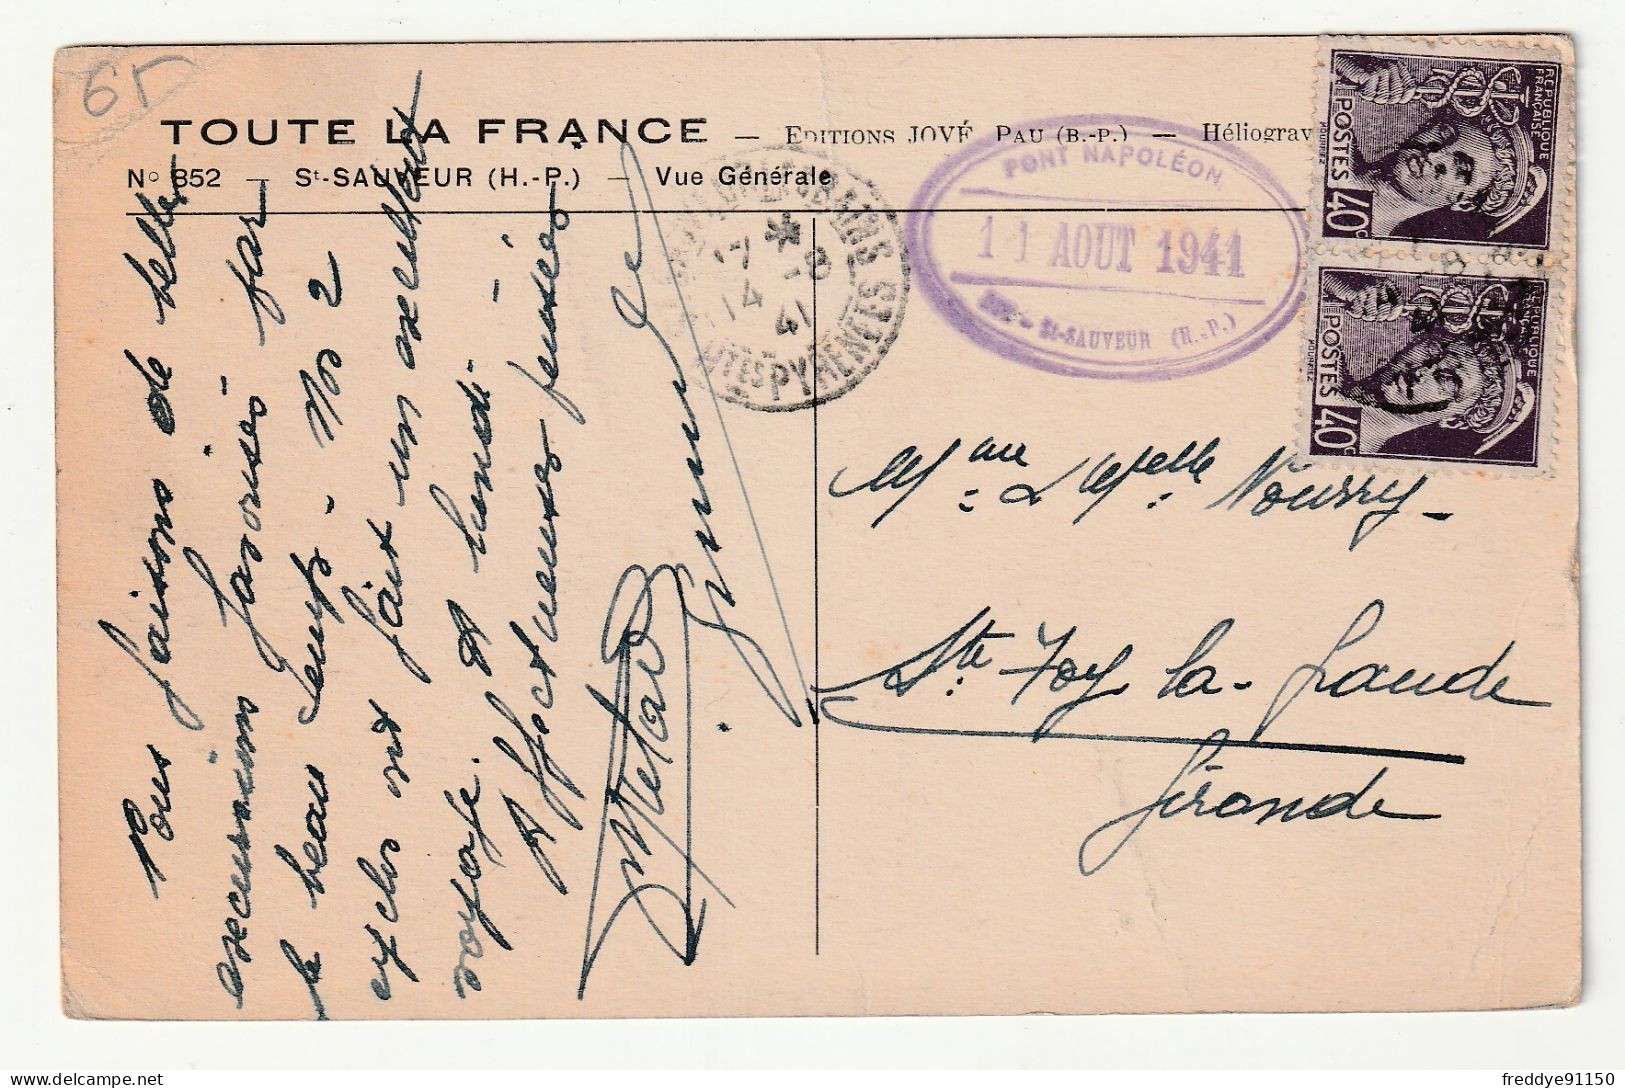 65
TOUTE LA FRANCE — EDITIONS JOVÉ, PAU (B.-P.) — Héliograv
N° 852 — St-SAUVEUR (H.-P.) — Vue Générale
PONT NAPOLÉON
11 AOUT 1941
St-SAUVEUR (H.-P.)
BAINS
17 * -8
14 41
HTES PYRÉNÉES
RÉPUBLIQUE FRANÇAISE
POSTES 40c
RÉPUBLIQUE FRANÇAISE
POSTES 40c
Nous faisons de belles
excursions favorisés par
le beau temps. Nos 2
cyclos ont fait un excellent
voyage. A lundi -
Affectueuses pensées
Mme & Melle Nourry -
Ste Foy la Grande
Gironde
freddye91150